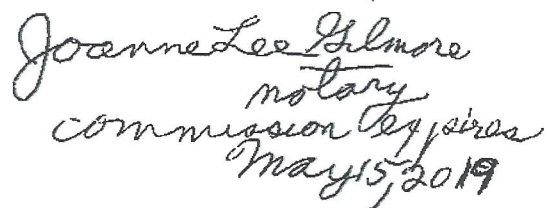 Joanne Lee Gilmore
notary
commission expires
May 15, 2019